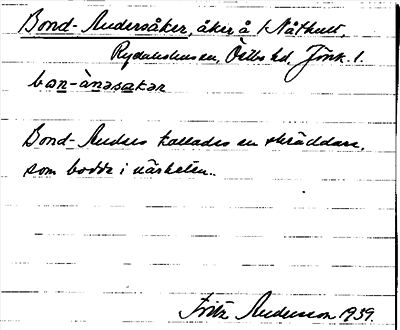 Bond-Andersåker, åker å 1 Nåthult,
Rydaholms sn, Östbo hd, Jönk. l.
ban-ànəsakər
Bond-Anders kallades en skräddare,
som bodde i närheten.
Fritz Andersson 1939.